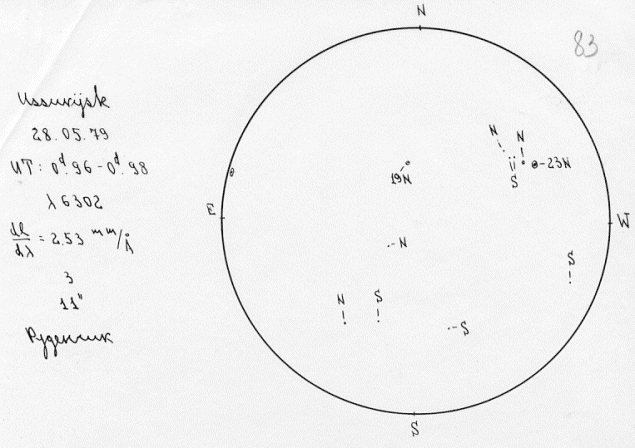 N
83
Ussurijsk
28.05.79
UT: 0ᵈ.96-0ᵈ.98
λ 6302
dl/dλ = 2.53 mm/Å
3
11"
Руденчик
N N
23N
S
19N
E
W
N
S
N S
S
S